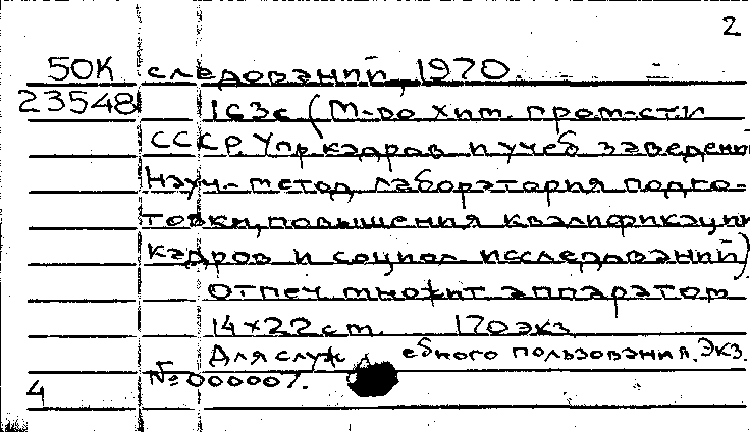 2
50К следований, 1970.
23548 163с (М-во хим. пром-сти
СССР. Упр. кадров и учеб заведени
Науч.-метод лаборатория подго-
товки, повышения квалификации
кадров и социол исследований)
Отпеч. множит аппаратом
14×22 см. 170 экз
Для служебного пользования. Экз.
№ 000007.
4